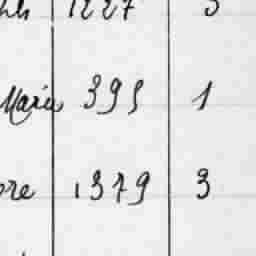 1227 3
Marie 395 1
bre 1379 3